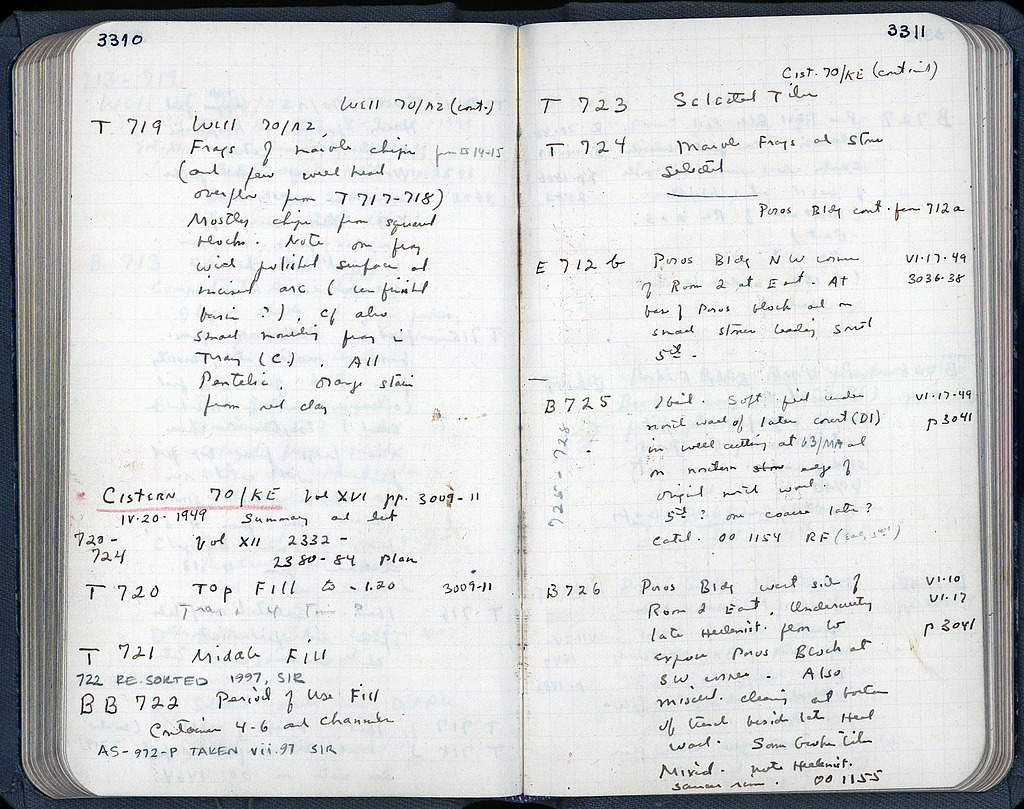 3310
Well 70/N2 (cont.)
T 719 Well 70/N2
Frags of marble chips from 14-15
(and few well head
overflow from T 717-718)
Mostly chips from squared
blocks. Note on frag
with polished surface and
incised arc (unfinished
basin ?), cf also
small moulding frag in
Tray (C.). All
Pentelic. Orange stain
from red clay
CISTERN 70/KE Vol XVI pp. 3009-11
IV.20.1949 Summary and list
720-
724
Vol XII 2332-
2380-84 Plan
T 720 Top Fill to -1.20 3009-11
Tray + 4 Tins ?
T 721 Middle Fill
722 RE-SORTED 1997, SIR
BB 722 Period of Use Fill
Container 4-6 and channel
AS-972-P TAKEN vii.97 SIR
3311
Cist. 70/KE (continued)
T 723 Selected Tile
T 724 Marble Frags and stone
selected
Poros Bldg cont. from 712a
E 712 b Poros Bldg NW corner VI.17.49
of Room 2 at East. At 3036-38
base of Poros block and on
small stones leading south
5th.
B 725 Ibid. Soft fill under VI.17.49
north wall of later court (D1) p 3041
in well cutting at 63/MA and
on northern edge of
original north wall.
5th? one coarse late?
Catal. 00 1154 RF (early 5th)
725-728
B 726 Poros Bldg west side of VI.10
Room 2 East. Undercutting VI.17
late Hellenist. floor to p 3041
expose Poros Block at
SW corner. Also
miscel. cleaning at bottom
of trench beside late Hell
wall. Some Geometric
Mixed. note Hellenist.
saucer rim. 00 1155